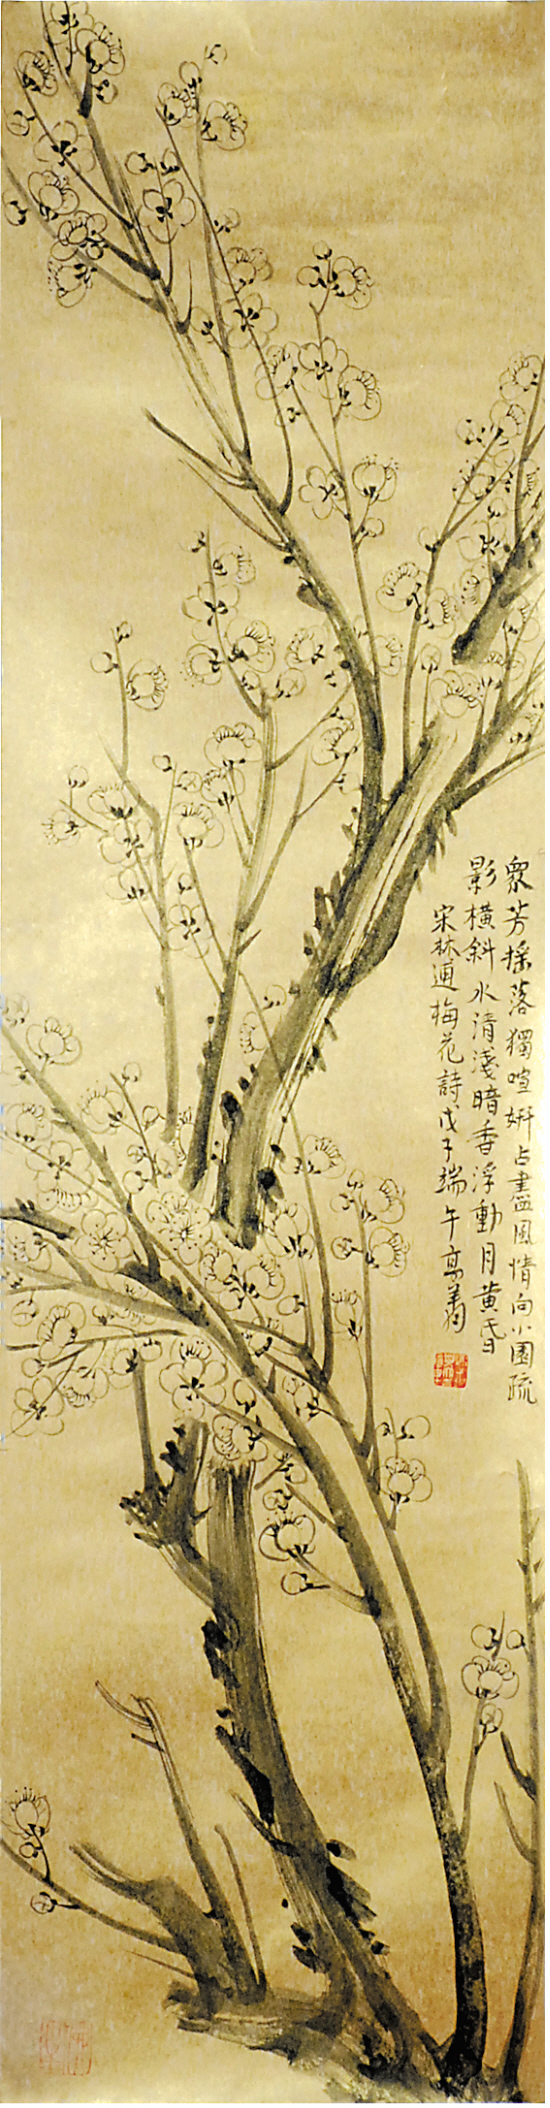 眾芳搖落獨喧妍占盡風情向小園疏
影橫斜水清淺暗香浮動月黃昏
宋林逋梅花詩戊子端午高